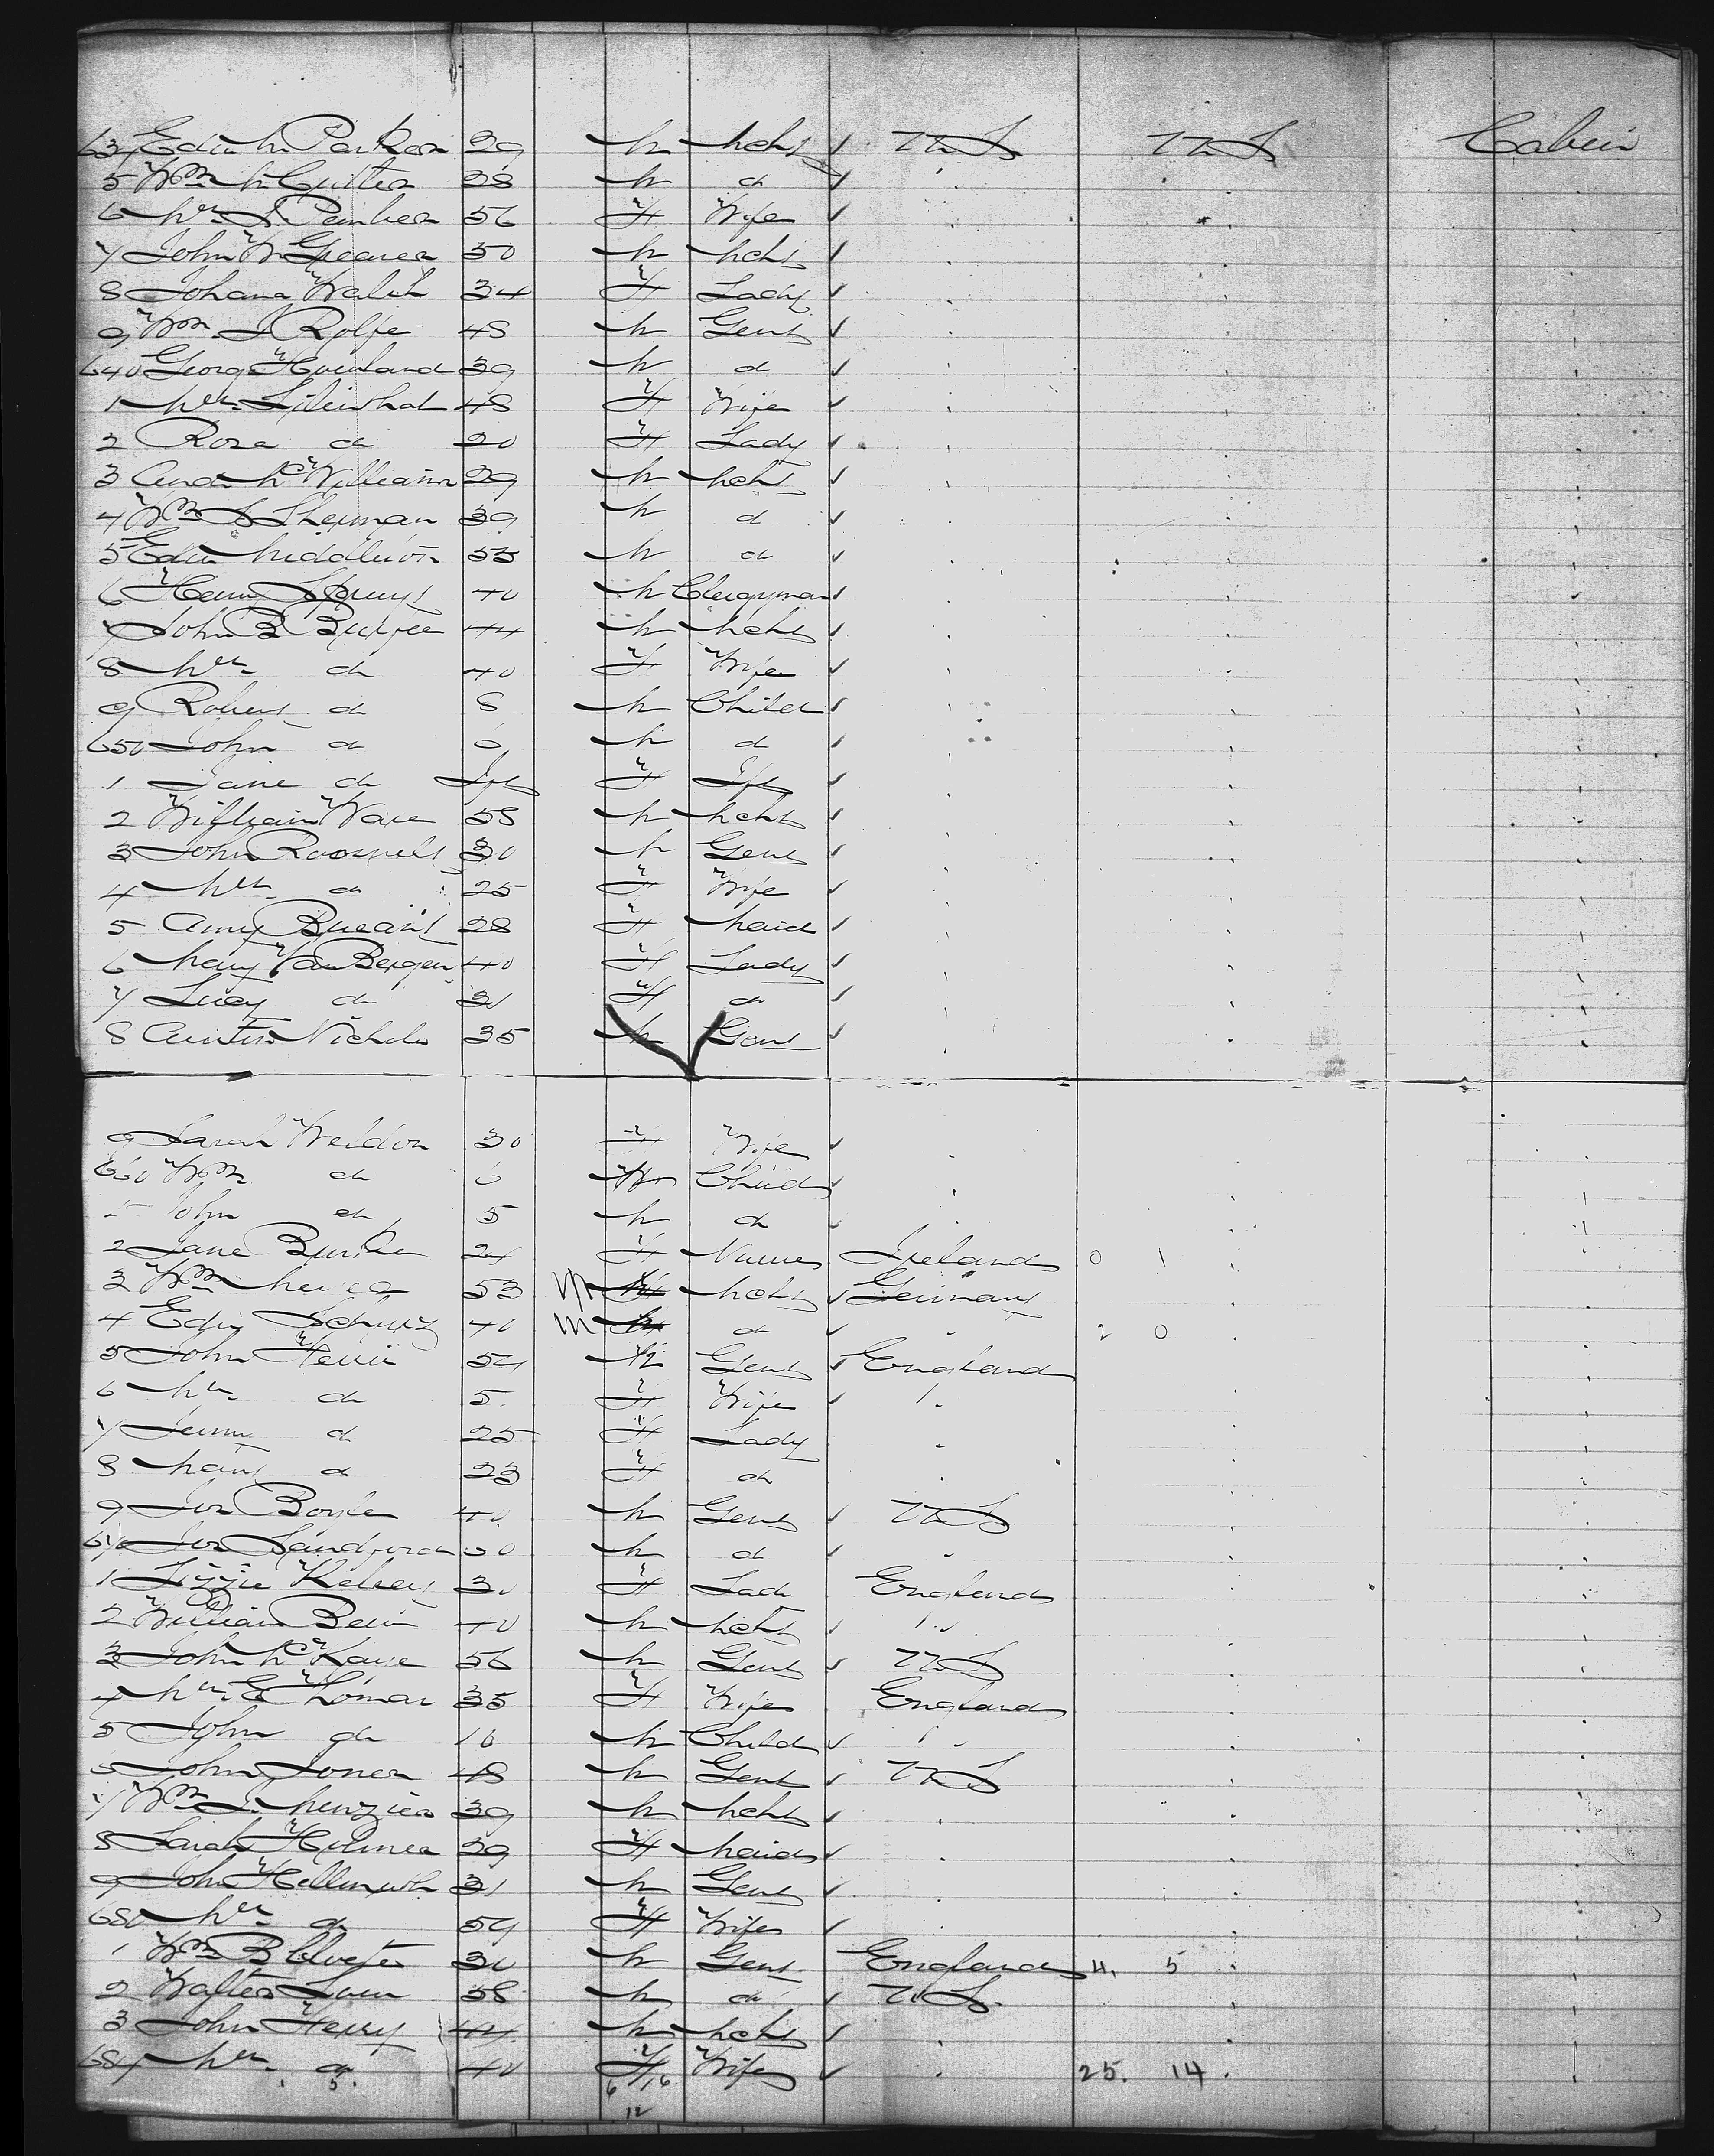 634 Edw M Parker 29 M Mcht U S U S Cabin
5 Wm M Cutter 28 M do
6 Mrs S Pember 56 F Wife
7 John W Greaves 50 M Mcht
8 Johana Walsh 34 F Lady
9 Wm J Rolfe 48 M Gent
640 Georg Howland 39 M do
1 Mrs Lilienthal 48 F Wife
2 Rosa do 20 F Lady
3 And Mc William 29 M Mcht
4 Wm S Sherman 39 M do
5 Edw Middleton 55 M do
6 Henry 40 M Clergyman
7 John B 44 M Mcht
8 Mrs do 40 F Wife
9 Robert do 8 M Child
650 John do 6 M do
1 Jane do Inft F Inft
2 William Ware 58 M Mcht
3 John Roosevelt 30 M Gent
4 Mrs do 25 F Wife
5 Amy Bryant 28 F Maid
6 Mary Van Bergen 40 F Lady
7 Lucy do 31 F do
8 Austin Nichols 35 M Gent
9 Sarah Weldon 30 F Wife
660 Wm do 6 M Child
John do 5 M do
2 Jane Burke 24 F Nurse Ireland 0 1
3 Wm 53 M Mcht Germany
4 Edw Schurz 40 M do 2 0
5 John 54 M Gent England
6 Mrs do F Wife
7 Jenny do 25 F Lady
8 Mary do 23 F do
9 Jos Boyle 40 M Gent U S
670 Jos Sandford 50 M do
1 Lizzie Kelsey 30 F Lady England
2 William 40 M Mcht
3 John Mc Kaye 56 M Gent U S
4 Mrs E Thomas 35 F Wife England
5 John do 10 M Child
John Jones 48 M Gent U S
7 Wm J Menzies 39 M Mcht
8 Sarah Holmes 29 F Maid
9 John 31 M Gent
680 Mrs do 54 F Wife
1 Wm B 30 M Gent England 4 5
2 Walter 38 M do U S
3 John Henry 44 M Mcht
684 Mrs do 40 F Wife 25 14
6 16
12